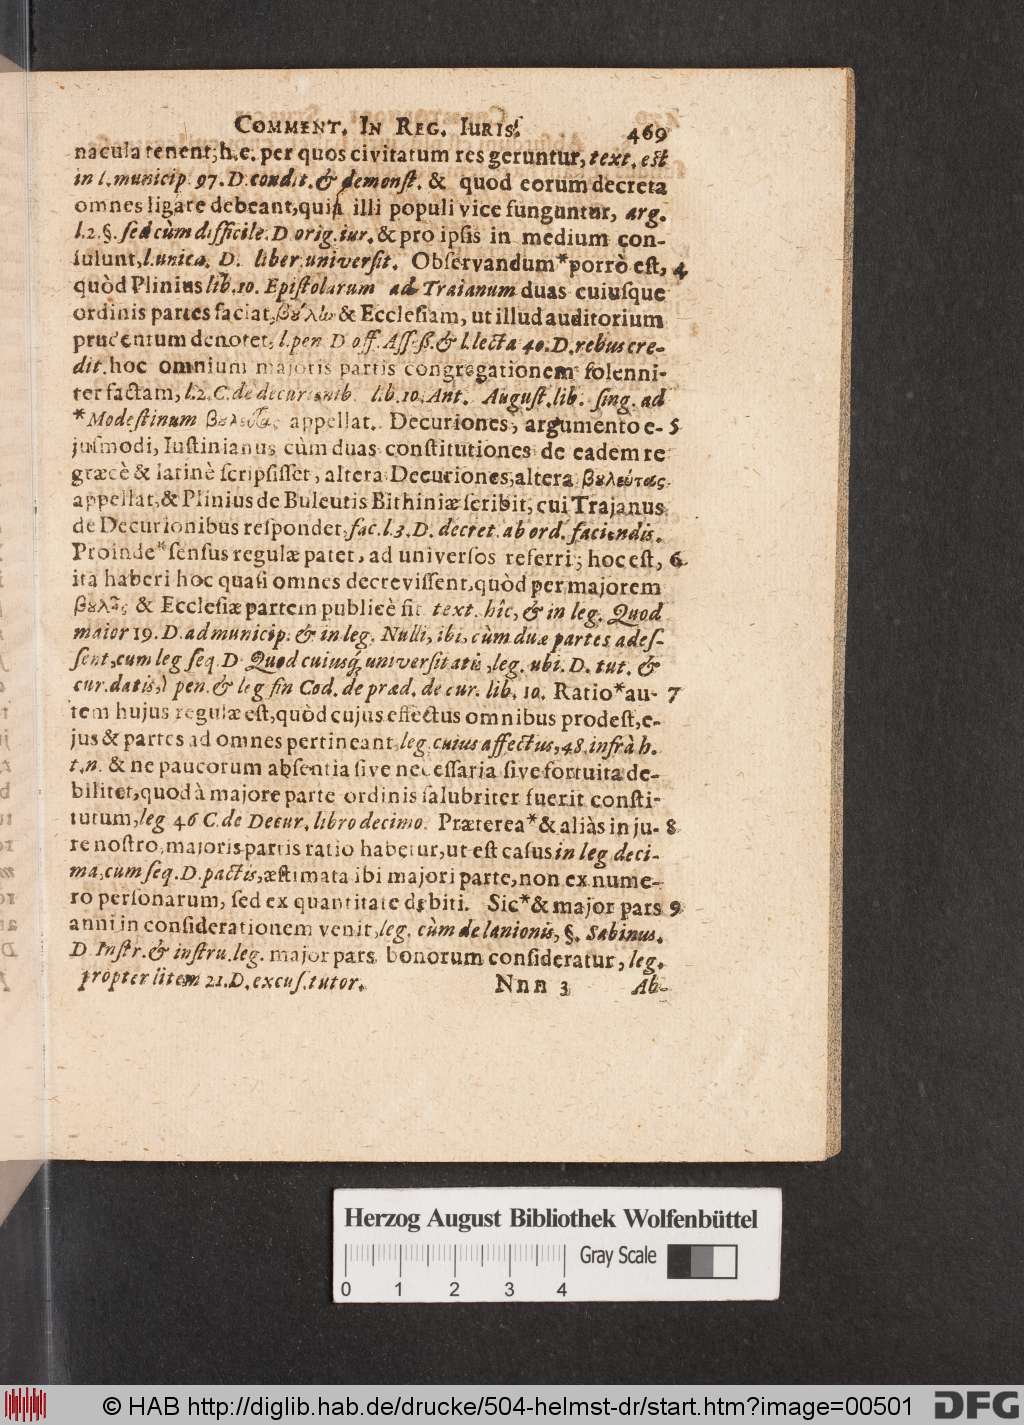 COMMENT. IN REG. IURIS. 469
nacula tenent; h.e. per quos civitatum res geruntur, text. est
in l. municip. 97. D. condit. & demonst. & quod eorum decreta
omnes ligare debeant, quia illi populi vice funguntur, arg.
l.2. §. sed cùm difficile. D. orig. iur. & pro ipsis in medium con-
sulunt, l. unica. D. liber. universit. Observandum * porrò est, 4
quòd Plinius lib. 10. Epistolarum ad Traianum duas cuiusque
ordinis partes faciat, & Ecclesiam, ut illud auditorium
prudentum denotet, l. pen D off. Assess. & l. lecta 40. D. rebus cre-
dit. hoc omnium majoris partis congregationem solenni-
ter factam, l.2. C. de decurionib. lib. 10. Ant. August. lib. sing. ad
* Modestinum appellat. Decuriones, argumento e- 5
jusmodi, Iustinianus cùm duas constitutiones de eadem re
græcè & latinè scripsisset, altera Decuriones, altera βȣλεύτας
appellat, & Plinius de Buleutis Bithiniæ scribit, cui Trajanus
de Decurionibus respondet, fac. l.3. D. decret. ab ord. faciendis.
Proinde * sensus regulæ patet, ad universos referri; hoc est, 6
ita haberi hoc quasi omnes decrevissent, quòd per majorem
βȣλῆς & Ecclesiæ partem publicè sit text. hîc, & in leg. Quod
maior 19. D. ad municip. & in leg. Nulli, ibi, cùm duæ partes ades-
sent, cum leg seq. D Quod cuiusq; universitatis, leg. ubi. D. tut. &
cur. datis, l pen. & leg fin Cod. de præd. decur. lib. 10. Ratio * au- 7
tem hujus regulæ est, quòd cujus effectus omnibus prodest, e-
jus & partes ad omnes pertineant, leg. cuius affectus, 48. infrà h.
t. n. & ne paucorum absentia sive necessaria sive fortuita de-
bilitet, quod à majore parte ordinis salubriter fuerit consti-
tutum, leg 46 C. de Decur. libro decimo. Præterea * & aliàs in ju- 8
re nostro, majoris partis ratio habetur, ut est casus in leg deci-
ma, cum seq. D. pactis, æstimata ibi majori parte, non ex nume-
ro personarum, sed ex quantitate debiti. Sic * & major pars 9
anni in considerationem venit, leg. cùm de lanionis, §. Sabinus.
D. Instr. & instru. leg. major pars bonorum consideratur, leg.
propter litem 21. D. excus. tutor. Nnn 3 Ab-
Herzog August Bibliothek Wolfenbüttel
Gray Scale
0 1 2 3 4
© HAB http://diglib.hab.de/drucke/504-helmst-dr/start.htm?image=00501
DFG